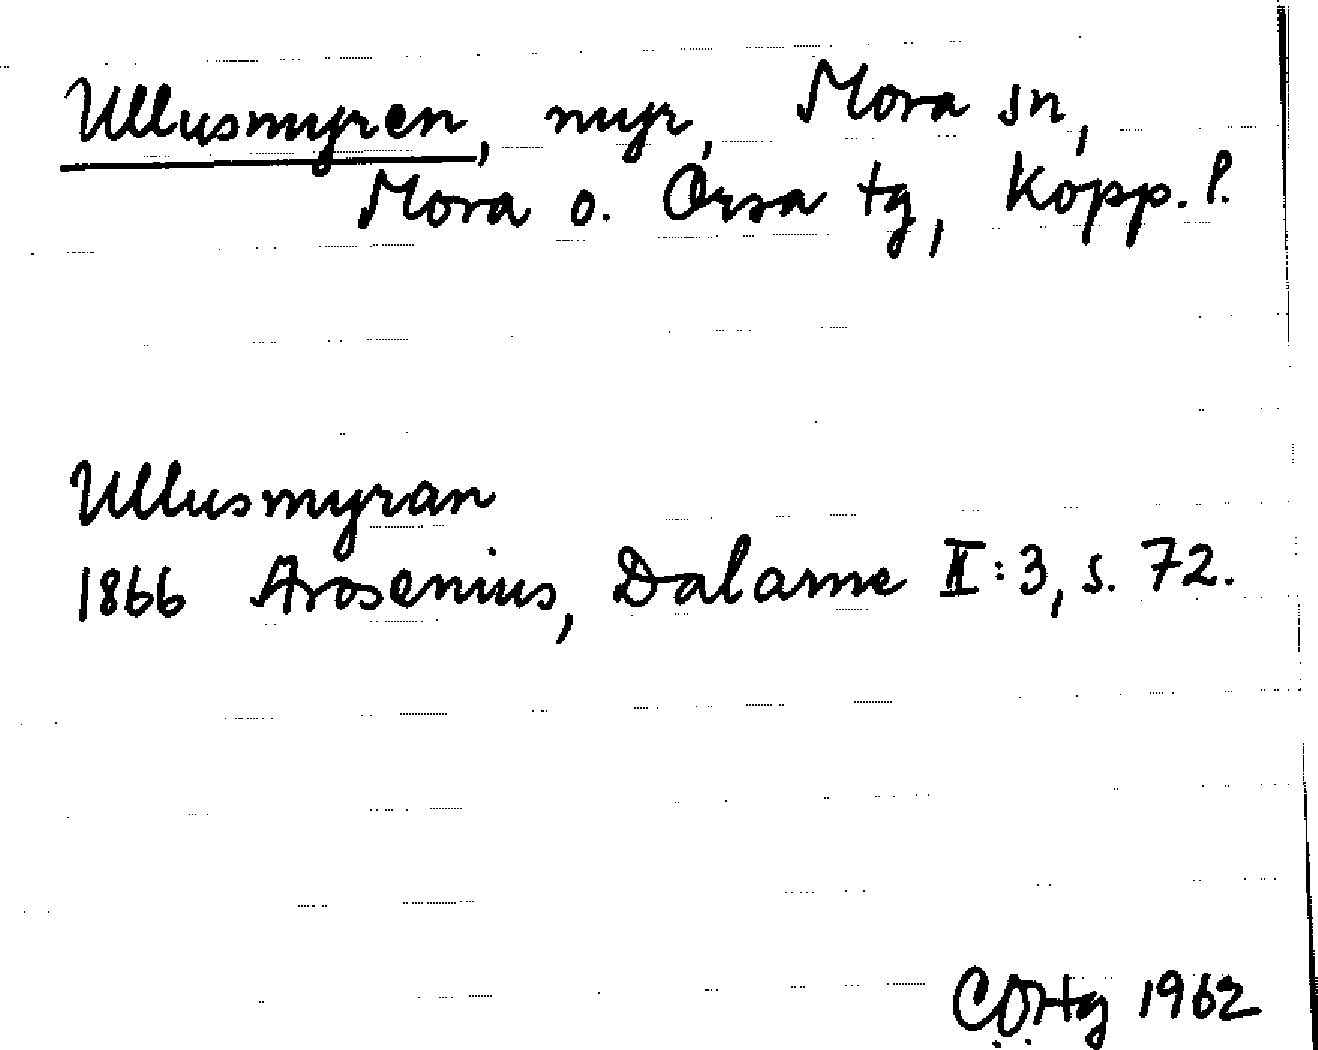 Ullusmyren, myr, Mora sn,
Mora o. Orsa tg, Kopp. l.
Ullusmyran
1866 Arosenius, Dalarne II:3, s. 72.
1962